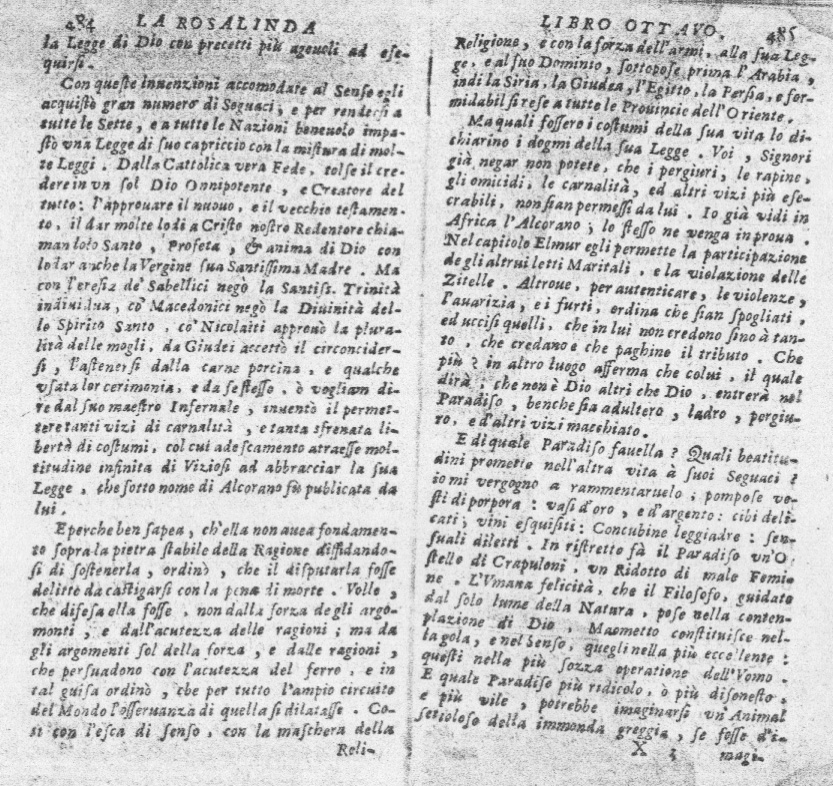 484 LA ROSALINDA
la Legge di Dio con precetti più ageuoli ad ese-
quirsi.
Con queste Inuenzioni accomodate al Senso egli
acquistò gran numero di Seguaci, e per rendersi a
tutte le Sette, e a tutte le Nazioni beneuolo impa-
stò vna Legge di suo capriccio con la mistura di mol-
te Leggi. Dalla Cattolica vera Fede, tolse il cre-
dere in vn sol Dio Onnipotente, e Creatore del
tutto: l'approuare il nuouo, e il vecchio testamen-
to, il dar molte lodi a Cristo nostro Redentore chia-
mandolo Santo, Profeta, & anima di Dio con
lodar anche la Vergine sua Santissima Madre. Ma
con l'eresia de' Sabellici negò la Santiss. Trinità
indiuidua, co' Macedonici negò la Diuinità del-
lo Spirito Santo, co' Nicolaiti approuò la plura-
lità delle mogli, da Giudei accettò il circoncider-
si, l'astenersi dalla carne porcina, e qualche
vsata lor cerimonia, e da se stesso, ò vogliam di-
re dal suo maestro Infernale, inuentò il permet-
tere tanti vizi di carnalità, e tanta sfrenata li-
bertà di costumi, col cui adescamento atraesse mol-
titudine infinita di Viziosi ad abbracciar la sua
Legge, che sotto nome di Alcorano fù publicata da
lui.
E perche ben sapea, ch'ella non auea fondamen-
to sopra la pietra stabile della Ragione diffidando-
si di sostenerla, ordinò, che il disputarla fosse
delitto da castigarsi con la pena di morte. Volle,
che difesa ella fosse, non dalla forza degli argo-
monti, e dall'acutezza delle ragioni; ma da
gli argomenti sol della forza, e dalle ragioni,
che persuadono con l'acutezza del ferro, e in
tal guisa ordinò, che per tutto l'ampio circuito
del Mondo l'osseruanza di quella si dilatasse. Co-
sì con l'esca di senso, con la maschera della
Reli-
LIBRO OTTAVO. 485
Religione, e con la forza dell'armi, alla sua Leg-
ge, e al suo Dominio, sottopose prima l'Arabia,
indi la Siria, la Giudea, l'Egitto, la Persia, e for-
midabil si rese a tutte le Prouincie dell'Oriente.
Ma quali fossero i costumi della sua vita lo di-
chiarino i dogmi della sua Legge. Voi, Signori
già negar non potete, che i pergiuri, le rapine,
gli omicidi, le carnalità, ed altri vizi più ese-
crabili, non sian permessi da lui. Io già vidi in
Africa l'Alcorano; lo stesso ne venga in proua.
Nel capitolo Elmur egli permette la participazione
de gli altrui letti Maritali, e la violazione delle
Zitelle. Altroue, per autenticare, le violenze,
l'auarizia, e i furti, ordina che sian spogliati,
ed uccisi quelli, che in lui non credono sino à tan-
to, che credano e che paghine il tributo. Che
più? in altro luogo afferma che colui, il quale
dirà, che non è Dio altri che Dio, entrerà nel
Paradiso, benche sia adultero, ladro, pergiu-
ro, e d'altri vizi macchiato.
E di quale Paradiso fauella? Quali beatitu-
dini promette nell'altra vita à suoi Seguaci?
io mi vergogno a rammentaruelo; pompose ve-
sti di porpora: vasi d'oro, e d'argento: cibi deli-
cati; vini esquisiti: Concubine leggiadre: sen-
suali diletti. In ristretto fà il Paradiso vn'O-
stello di Crapuloni, vn Ridotto di male Femi-
ne. L'Vmana felicità, che il Filosofo, guidato
dal solo lume della Natura, pose nella contem-
plazione di Dio, Maometto constituisce nel-
la gola, e nel Senso, quegli nella più eccellente:
questi nella più sozza operatione dell'Vomo.
E quale Paradiso più ridicolo, ò più disonesto,
e più vile, potrebbe imaginarsi vn'Animal
setioloso della immonda greggia, se fosse d'i-
X 3 magi-